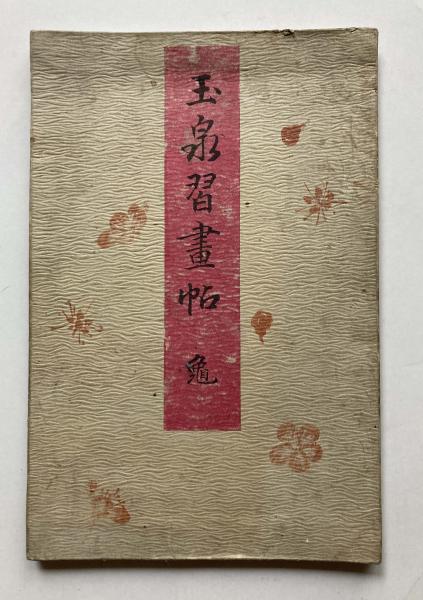 玉泉習畫帖 龜